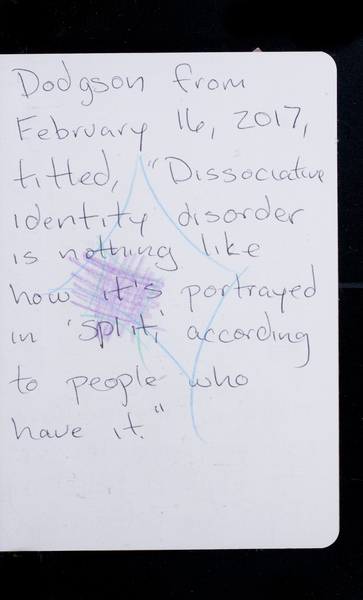 Dodgson from
February 16, 2017,
titled, "Dissociative
identity disorder
is nothing like
how it's portrayed
in 'split,' according
to people who
have it."